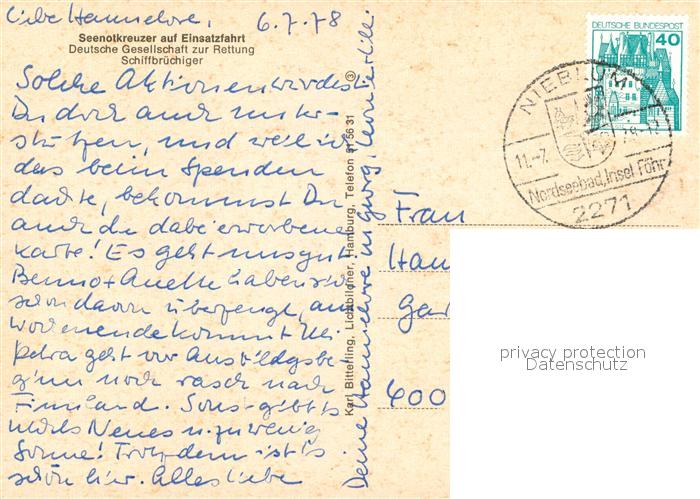 Liebe Hannelore, 6.7.78
Seenotkreuzer auf Einsatzfahrt
Deutsche Gesellschaft zur Rettung
Schiffbrüchiger
Solche Aktionen würdest
Du doch auch unter-
stützen, und weil ich
das beim Spenden
dachte, bekommst Du
auch die dabei erworbene
Karte! Es geht uns gut.
Benno + Anette haben sich
schon davon überzeugt, am
Wochenende kommt Ulli.
Petra geht vor Ausbildgsbe-
ginn noch rasch nach
Finnland. Sonst gibt es
nichts Neues u. zu wenig
Sonne! Trotzdem ist es
schön hier. Alles Liebe
Deine Hannelore m. Georg,
Karl Bitterling, Lichtbildner, Hamburg, Telefon 81 56 31 ③
DEUTSCHE BUNDESPOST
40
NIEBLUM
11.-7.
Nordseebad, Insel Föhr
2271
Frau
Han
Gar
600
privacy protection
Datenschutz